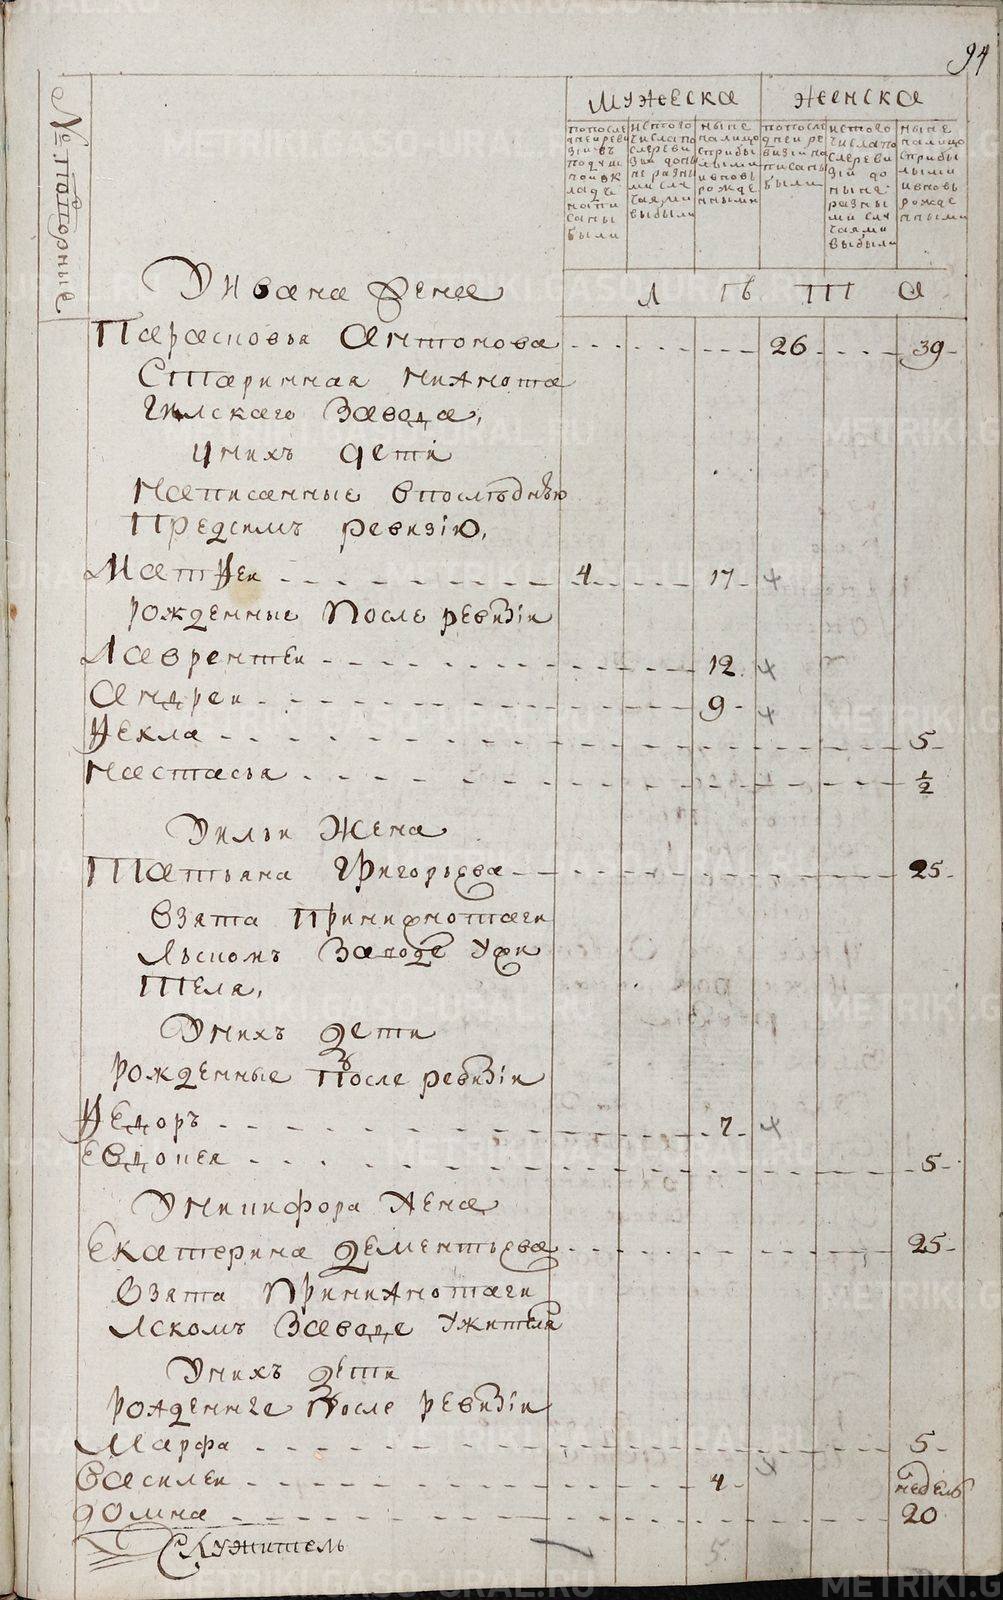 94
№ Попорные
Мужеска
Женска
попослѣ дней ревизіи въ подушной окладъ написаны были
исптого числа послѣ ревизіи донынѣ разными случаями выбыли
ныне налицо сприбылыми ивновь рожденными
попослѣдней ревизіи написаны были
истого числа послѣ ревизіи доныне разными случаями выбыли
ныне налицо сприбылыми ивновь рожденными
Уивана жена
Л Ѣ Т А
Парасковья Антонова 26 39
Старинная нижнота
гилскаго завода,
уних дети
написанные впоследнюю
предсимъ ревизію,
Матфеи 4 17
рожденные после ревизіи
Лаврентеи 12
Андреи 9
Фекла 5
Настасья 1/2
Уильи жена
Татьяна Григорьева 25
взята принижнотаги
льскомъ заводе ужи
теля,
Унихъ дети
рожденные после ревизіи
Федоръ 7
Евдокея 5
Уникифора жена
Екатерина Дементьева 25
взята принижнотаги
лскомъ заводе ужителя
Унихъ дети
рожденные после ревизіи
Марфа 5
Василеи 4
недель
Домна 20
Служитель
5